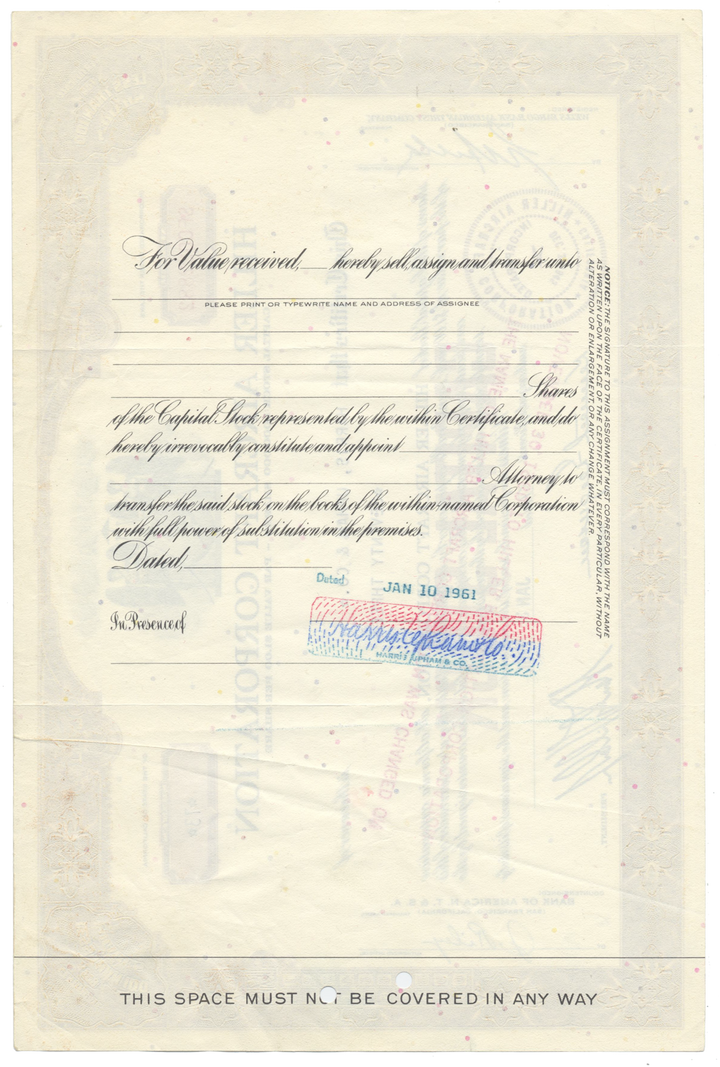 For Value received, ___ hereby sell, assign and transfer unto
PLEASE PRINT OR TYPEWRITE NAME AND ADDRESS OF ASSIGNEE
Shares
of the Capital Stock represented by the within Certificate, and do
hereby irrevocably constitute and appoint
Attorney to
transfer the said stock on the books of the within-named Corporation
with full power of substitution in the premises.
Dated,
Dated JAN 10 1961
In Presence of
Harris, Upham & Co.
HARRIS, UPHAM & CO.
NOTICE: THE SIGNATURE TO THIS ASSIGNMENT MUST CORRESPOND WITH THE NAME
AS WRITTEN UPON THE FACE OF THE CERTIFICATE, IN EVERY PARTICULAR, WITHOUT
ALTERATION OR ENLARGEMENT, OR ANY CHANGE WHATEVER.
THIS SPACE MUST NOT BE COVERED IN ANY WAY